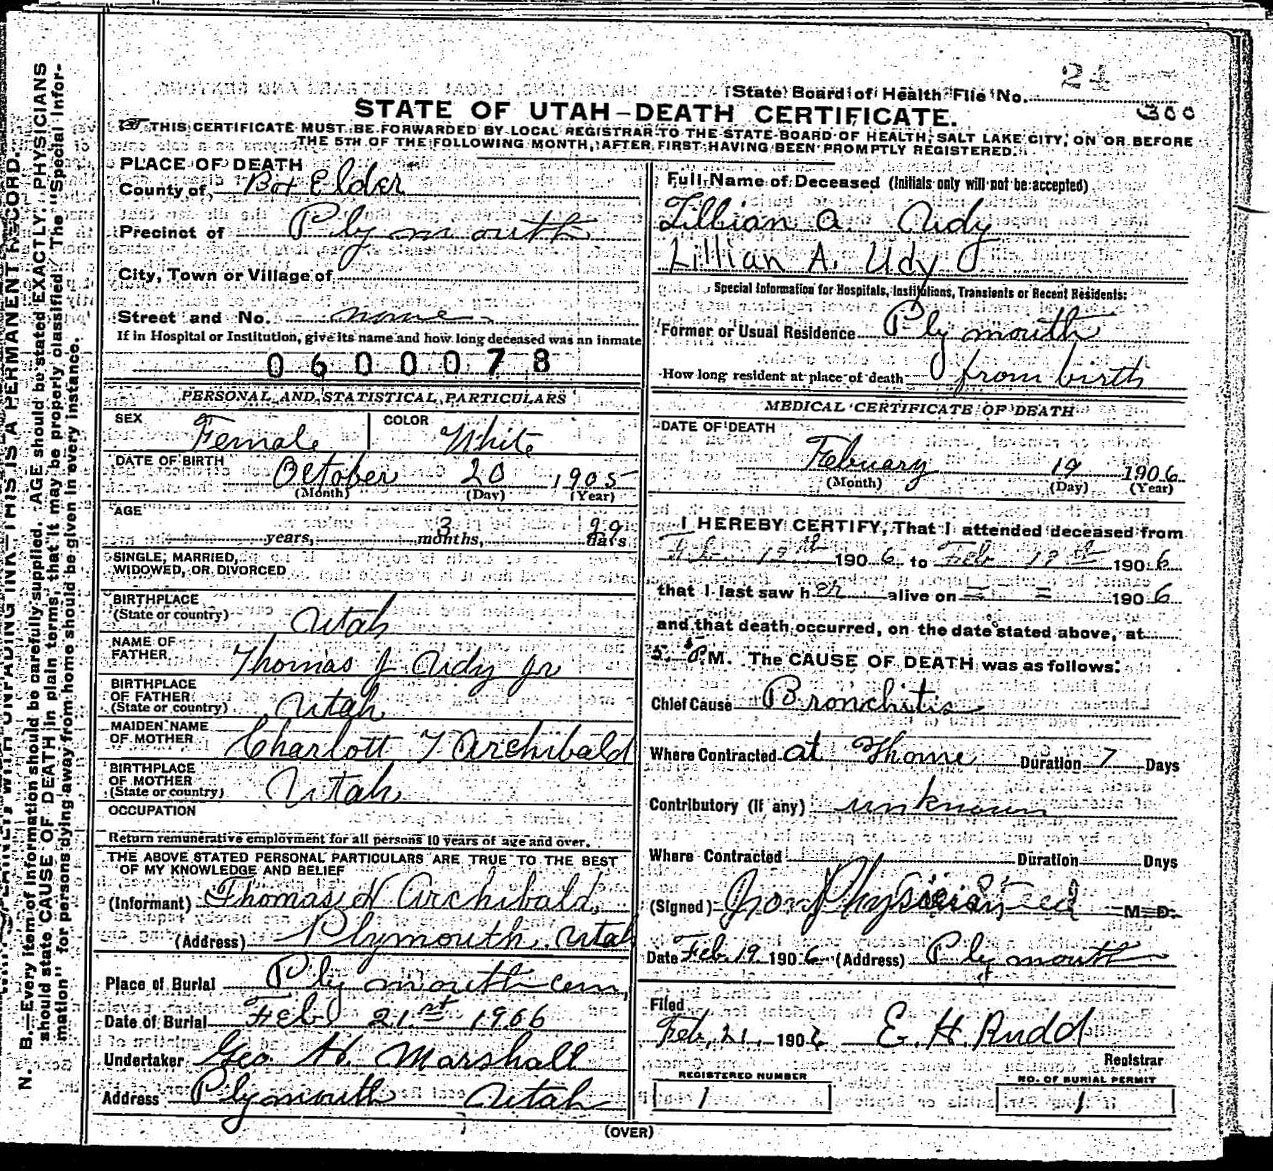 24
State Board of Health File No.
300
STATE OF UTAH—DEATH CERTIFICATE.
THIS CERTIFICATE MUST BE FORWARDED BY LOCAL REGISTRAR TO THE STATE BOARD OF HEALTH, SALT LAKE CITY, ON OR BEFORE
THE 5TH OF THE FOLLOWING MONTH, AFTER FIRST HAVING BEEN PROMPTLY REGISTERED.
N. B.—Every item of information should be carefully supplied. AGE should be stated EXACTLY. PHYSICIANS
should state CAUSE OF DEATH in plain terms, that it may be properly classified. The "Special Infor-
mation" for persons dying away from home should be given in every instance.
PLACE OF DEATH
County of Box Elder
Precinct of Plymouth
City, Town or Village of
Street and No. none
If in Hospital or Institution, give its name and how long deceased was an inmate
0600078
PERSONAL AND STATISTICAL PARTICULARS
SEX Female COLOR White
DATE OF BIRTH October 20 1905
(Month) (Day) (Year)
AGE
years, 3 months, 29 days
SINGLE, MARRIED,
WIDOWED, OR DIVORCED
BIRTHPLACE
(State or country) Utah
NAME OF
FATHER Thomas J Udy Jr
BIRTHPLACE
OF FATHER
(State or country) Utah
MAIDEN NAME
OF MOTHER Charlott T Archibald
BIRTHPLACE
OF MOTHER
(State or country) Utah
OCCUPATION
Return remunerative employment for all persons 10 years of age and over.
THE ABOVE STATED PERSONAL PARTICULARS ARE TRUE TO THE BEST
OF MY KNOWLEDGE AND BELIEF
(Informant) Thomas H Archibald,
(Address) Plymouth, Utah
Place of Burial Plymouth Cem,
Date of Burial Feb 21st 1906
Undertaker Geo H. Marshall
Address Plymouth Utah
Full Name of Deceased (Initials only will not be accepted)
Lillian A. Udy
Lillian A. Udy
Special Information for Hospitals, Institutions, Transients or Recent Residents:
Former or Usual Residence Plymouth
How long resident at place of death from birth
MEDICAL CERTIFICATE OF DEATH
DATE OF DEATH
Febuary 19 1906
(Month) (Day) (Year)
I HEREBY CERTIFY, That I attended deceased from
Feb 190 6 to Feb 190 6
that I last saw her alive on = = 190 6
and that death occurred, on the date stated above, at
5 P M. The CAUSE OF DEATH was as follows:
Chief Cause Bronchitis
Where Contracted at Home Duration 7 Days
Contributory (if any) unknown
Where Contracted Duration Days
(Signed) Physician M. D.
Date Feb 19 1906 (Address) Plymouth
Filed
Feb, 21, 1906 E. H. Rudd
Registrar
REGISTERED NUMBER
1
NO. OF BURIAL PERMIT
1
(OVER)